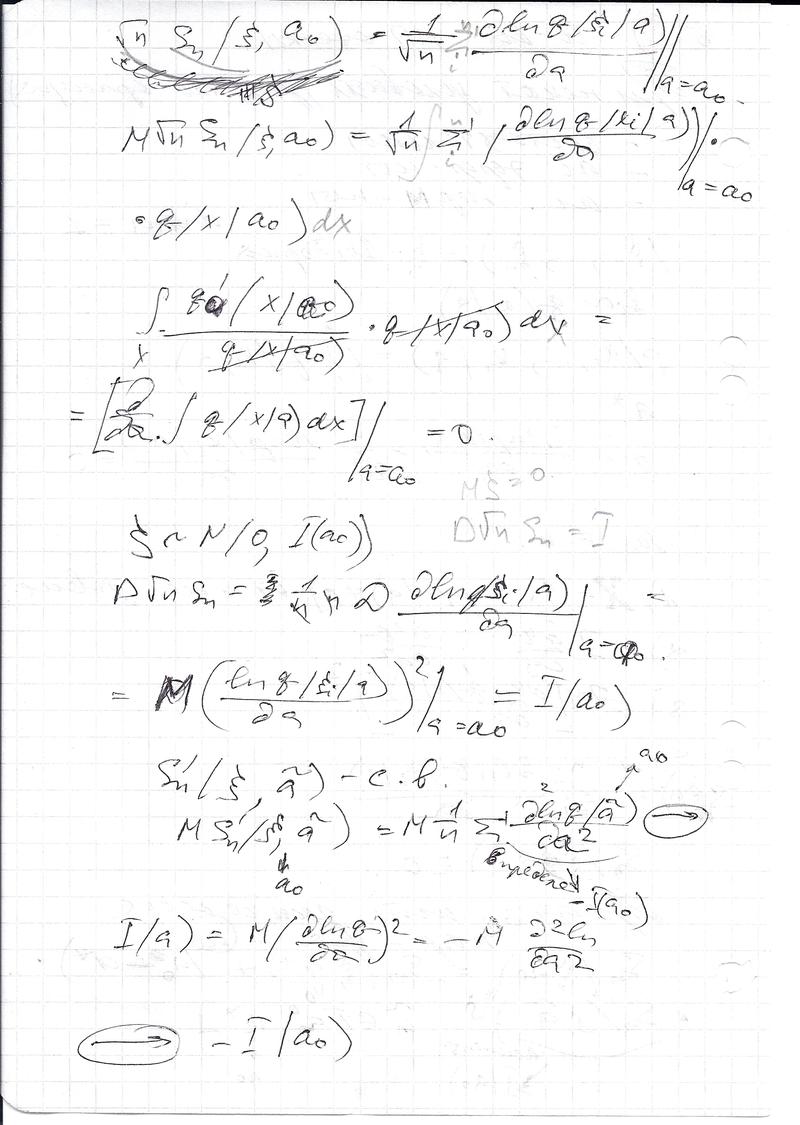 √n Sn(ξ, a₀) = 1/√n Σᵢⁿ ∂ln q(ξᵢ/a)/∂a |a=a₀.
M√n Sn(ξ, a₀) = 1/√n Σᵢⁿ ∫(∂ln q(xᵢ/a)/∂a)|a=a₀ ·
· q(x/a₀)dx
∫x q'a(x/a₀)/q(x/a₀) · q(x/a₀)dx =
= [∂/∂a · ∫ q(x/a)dx]|a=a₀ = 0.
Mξ = 0
ξ ~ N(0, I(a₀))
D√n Sn = I
D√n Sn = 1/n n D ∂ln q(ξᵢ/a)/∂a |a=a₀. =
= M(ln q(ξᵢ/a)/∂a)²|a=a₀ = I(a₀)
Sn'(ξ, ã) – с.в.
a₀
M Sn'(ξ, ã) = M 1/n Σ ∂²ln q(ã)/∂a² →
a₀
в пределе
–I(a₀)
I(a) = M(∂ln q/∂a)² = – M ∂²ln/∂a²
→ – I(a₀)